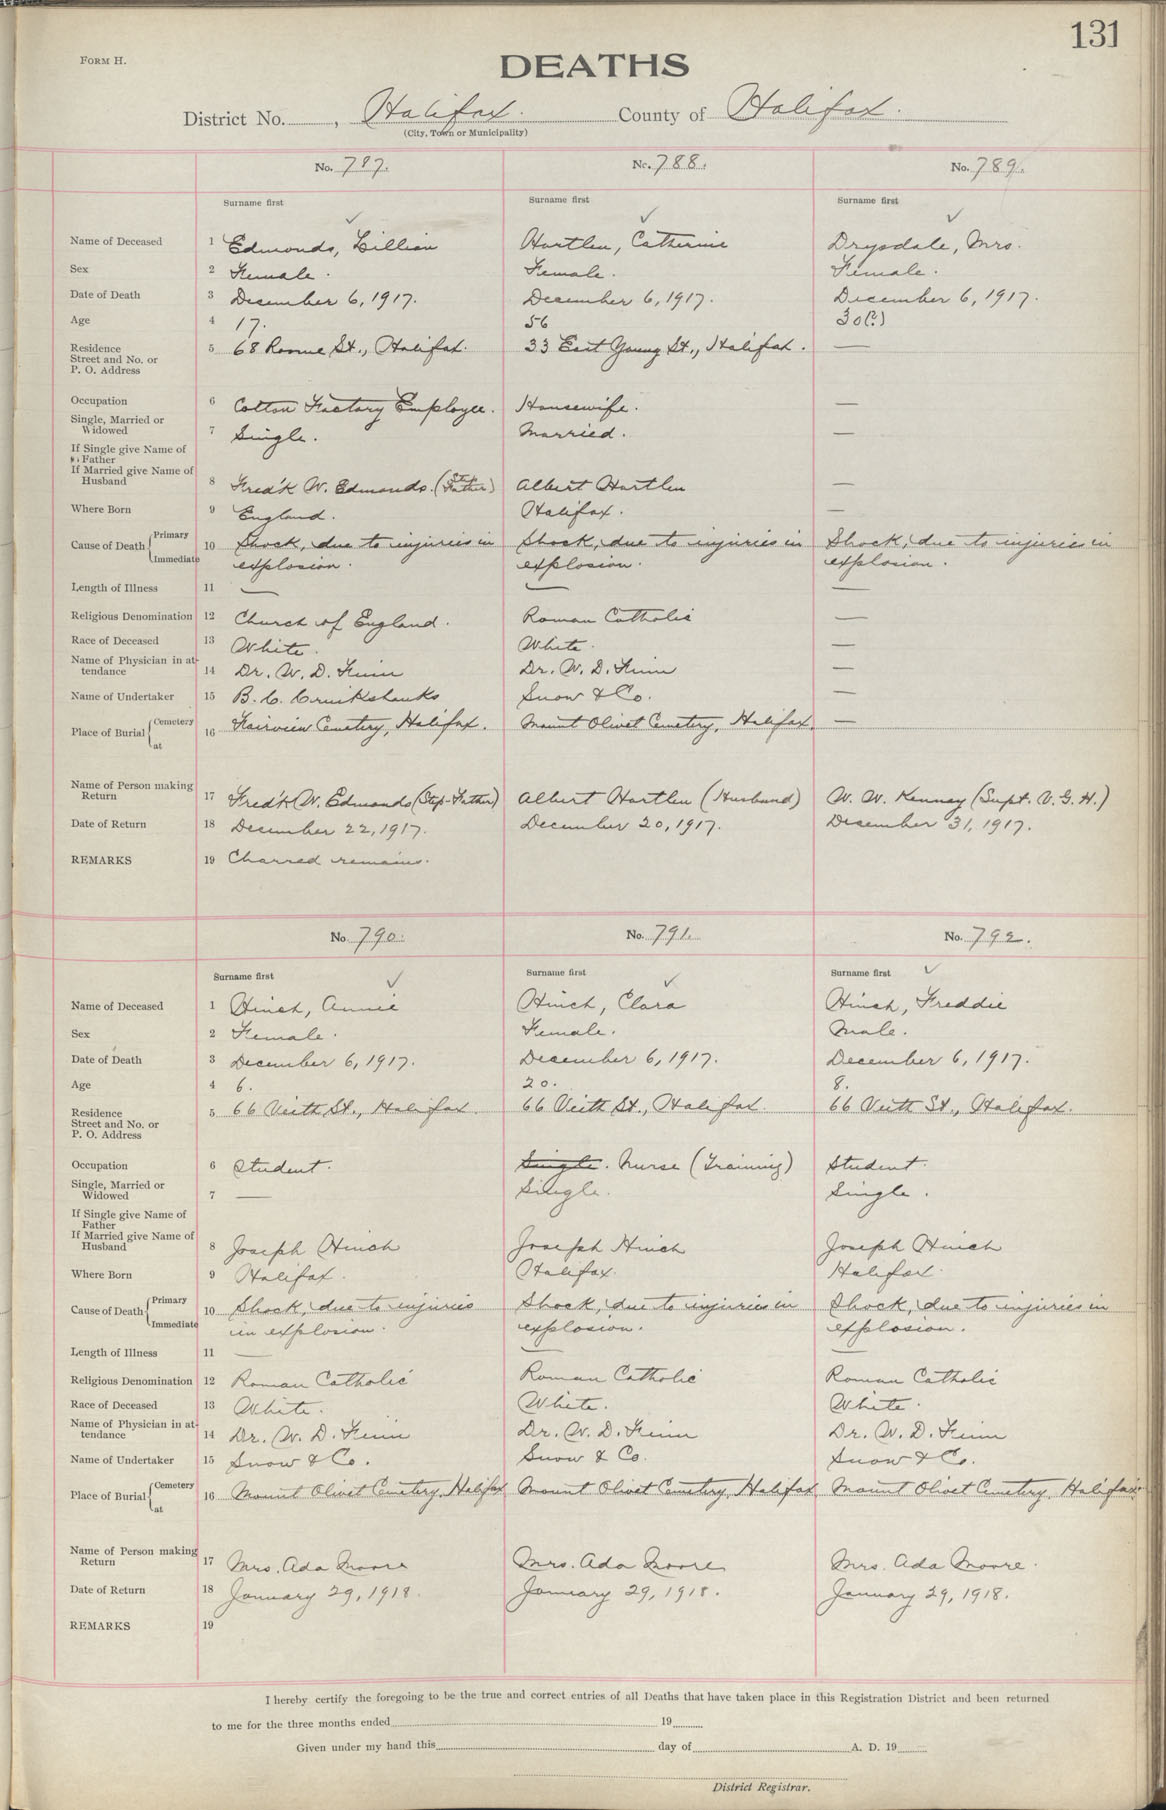 131
FORM H.
DEATHS
District No. , Halifax. County of Halifax.
(City, Town or Municipality)
No. 787. No. 788. No. 789.
Surname first Surname first Surname first
Name of Deceased 1 Edmonds, Lillian Hartlen, Catherine Drysdale, Mrs.
Sex 2 Female. Female. Female.
Date of Death 3 December 6, 1917. December 6, 1917. December 6, 1917.
Age 4 17. 56 30(?)
Residence 5 68 Roome St., Halifax. 33 East Young St., Halifax. —
Street and No. or
P. O. Address
Occupation 6 Cotton Factory Employee. Housewife. —
Single, Married or
Widowed 7 Single. Married. —
If Single give Name of
Father
If Married give Name of
Husband 8 Fred'k W. Edmonds. (Step Father) Albert Hartlen —
Where Born 9 England. Halifax. —
Cause of Death Primary 10 Shock, due to injuries in Shock, due to injuries in Shock, due to injuries in
Immediate explosion. explosion. explosion.
Length of Illness 11 — — —
Religious Denomination 12 Church of England. Roman Catholic —
Race of Deceased 13 White. White. —
Name of Physician in at-
tendance 14 Dr. W. D. Finn Dr. W. D. Finn —
Name of Undertaker 15 B. C. Cruikshanks Snow & Co. —
Place of Burial Cemetery at 16 Fairview Cemetery, Halifax. Mount Olivet Cemetery, Halifax. —
Name of Person making
Return 17 Fred'k W. Edmonds (Step-Father) Albert Hartlen (Husband) W. W. Kenney (Supt. V. G. H.)
Date of Return 18 December 22, 1917. December 20, 1917. December 31, 1917.
REMARKS 19 Charred remains.
No. 790. No. 791. No. 792.
Surname first Surname first Surname first
Name of Deceased 1 Hinch, Annie Hinch, Clara Hinch, Freddie
Sex 2 Female. Female. Male.
Date of Death 3 December 6, 1917. December 6, 1917. December 6, 1917.
Age 4 6. 20. 8.
Residence 5 66 Veith St., Halifax. 66 Veith St., Halifax. 66 Veith St., Halifax.
Street and No. or
P. O. Address
Occupation 6 Student. Single. Nurse (Training) Student.
Single, Married or
Widowed 7 — Single. Single.
If Single give Name of
Father
If Married give Name of
Husband 8 Joseph Hinch Joseph Hinch Joseph Hinch
Where Born 9 Halifax. Halifax. Halifax.
Cause of Death Primary 10 Shock, due to injuries Shock, due to injuries in Shock, due to injuries in
Immediate in explosion. explosion. explosion.
Length of Illness 11 — — —
Religious Denomination 12 Roman Catholic Roman Catholic Roman Catholic
Race of Deceased 13 White. White. White.
Name of Physician in at-
tendance 14 Dr. W. D. Finn Dr. W. D. Finn Dr. W. D. Finn
Name of Undertaker 15 Snow & Co. Snow & Co. Snow & Co.
Place of Burial Cemetery at 16 Mount Olivet Cemetery, Halifax Mount Olivet Cemetery, Halifax Mount Olivet Cemetery, Halifax.
Name of Person making
Return 17 Mrs. Ada Moore Mrs. Ada Moore Mrs. Ada Moore.
Date of Return 18 January 29, 1918. January 29, 1918. January 29, 1918.
REMARKS 19
I hereby certify the foregoing to be the true and correct entries of all Deaths that have taken place in this Registration District and been returned
to me for the three months ended 19
Given under my hand this day of A. D. 19
District Registrar.